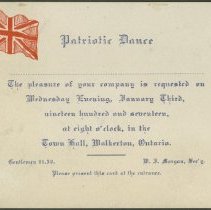 Patriotic Dance
The pleasure of your company is requested on
Wednesday Evening, January Third,
nineteen hundred and seventeen,
at eight o'clock, in the
Town Hall, Walkerton, Ontario.
Gentlemen $1.50. W. J. Morgan, Sec'y.
Please present this card at the entrance.